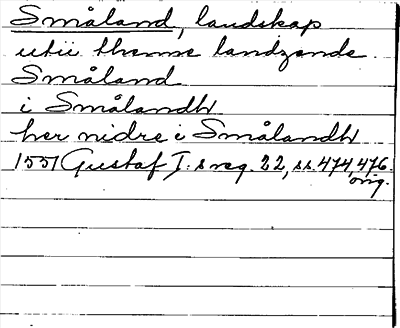 Småland, landskap
utii themne landzende
Småland
i Smålandh
her nidre i Smålandh
1551 Gustaf I:s reg. 22, ss. 474, 476.
orig.